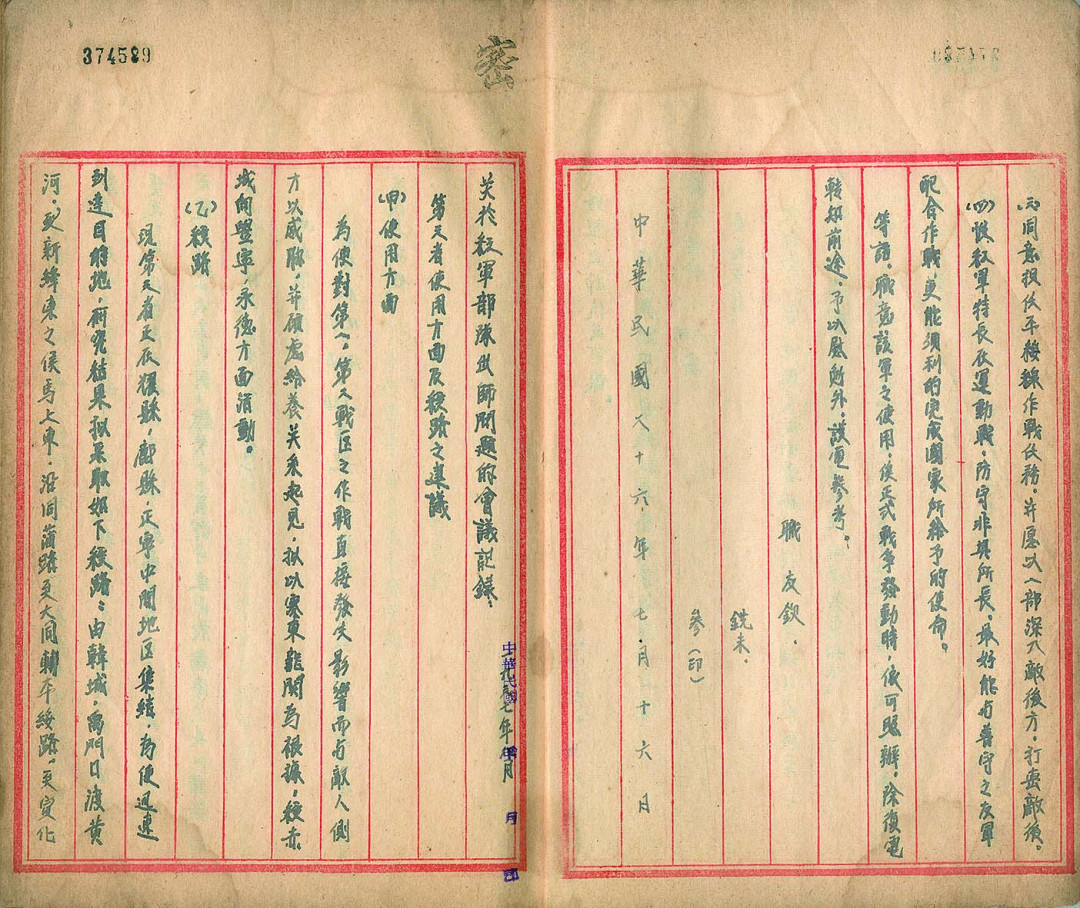 374589
密
(三)同意担任平綏線作戰任務。并愿以一部深入敵後方。打击敵後。
(四)該紅軍特長在運動戰。防守非其所長。最好能与善守之友軍
配合作戰。更能順利的完成國家所給予的使命。
等語。職意該軍之使用。俟正式戰爭發動時。似可照辦。除復電
轉知前途。予以慰勉外。謹電參考。
職 友欽.
銑未.
參(印)
中華民國二十六年七月十六日
关於紅軍部隊出師問題的會議記錄.
第 者使用方面及綫路之建議
(甲)使用方面
為便對第一.第二戰區之作戰直接發生影響而与敵人側
方以威脅。并顧慮給養关系起見。拟以察東龍關為根據。經赤
城向 寧.永德方面活動。
(乙)綫路
現第 者正在 縣.鄜縣.正寧中間地區集結。為便迅速
到達目的地。研究結果拟采取如下綫路:由韓城.禹門口渡黃
河。更新絳東之侯馬上車。沿同蒲路至大同轉平綏路。至宣化
中華民國
年
月